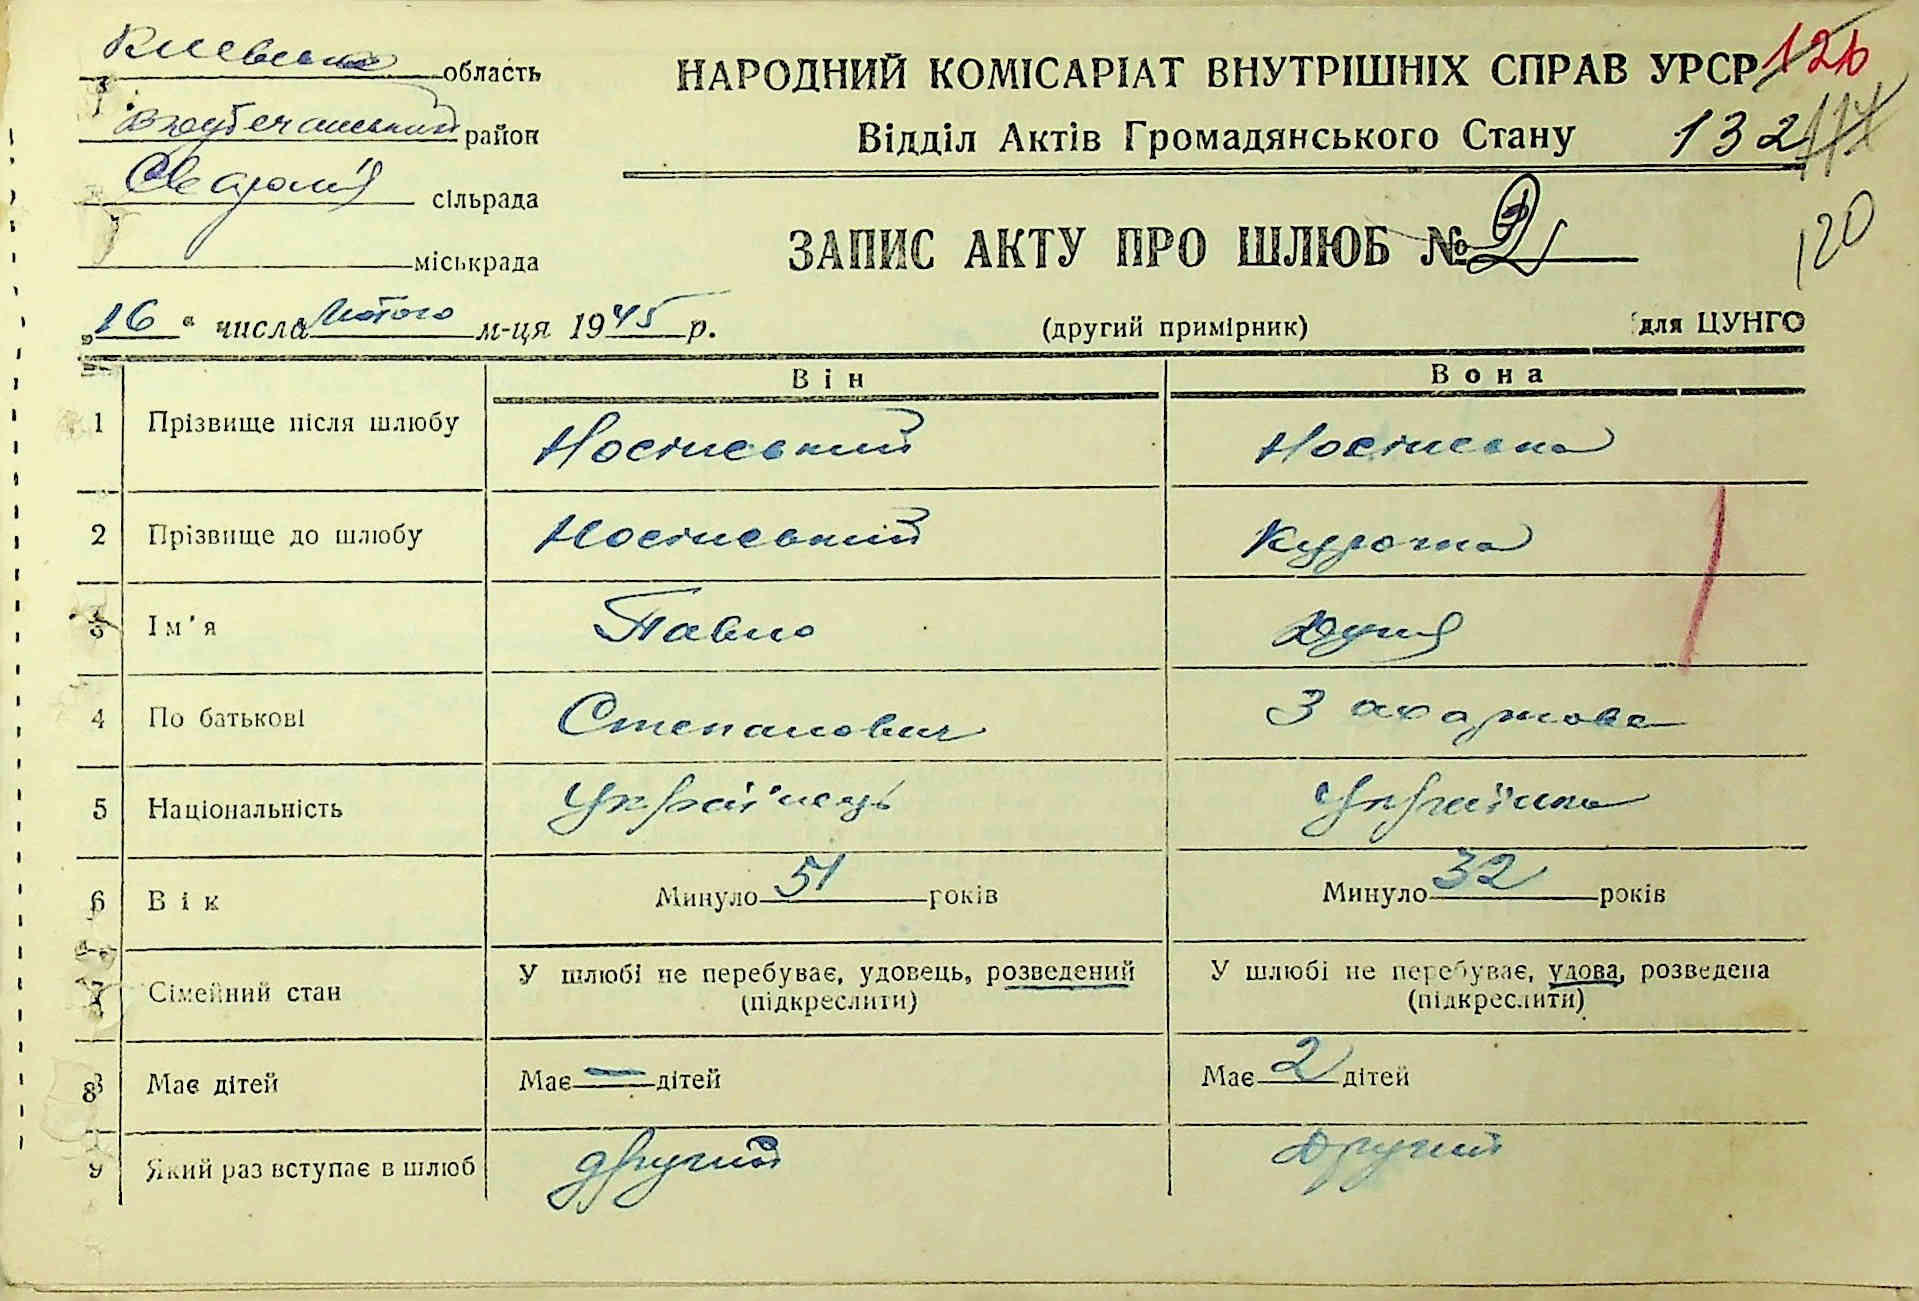 Київська область
район
сільрада
міськрада
НАРОДНИЙ КОМІСАРІАТ ВНУТРІШНІХ СПРАВ УРСР 126
Відділ Актів Громадянського Стану 132 117
120
ЗАПИС АКТУ ПРО ШЛЮБ № 2
„16“ числа Лютого м-ця 1945 р.
(другий примірник)
для ЦУНГО
Він Вона
1 Прізвище після шлюбу
2 Прізвище до шлюбу
3 Ім'я Павло
4 По батькові Степанович Захарова
5 Національність Українець Українка
6 Вік Минуло 51 років Минуло 32 років
7 Сімейний стан У шлюбі не перебуває, удовець, розведений (підкреслити) У шлюбі не перебуває, удова, розведена (підкреслити)
8 Має дітей Має — дітей Має 2 дітей
9 Який раз вступає в шлюб другий Другий